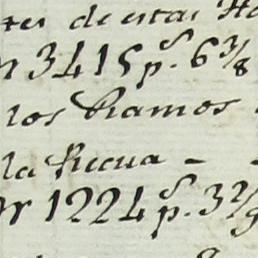 tes de estas Ha
n 3415 ps. 6 3/8
los Ramos
la Recua -
or 1224 ps. 3 2/9